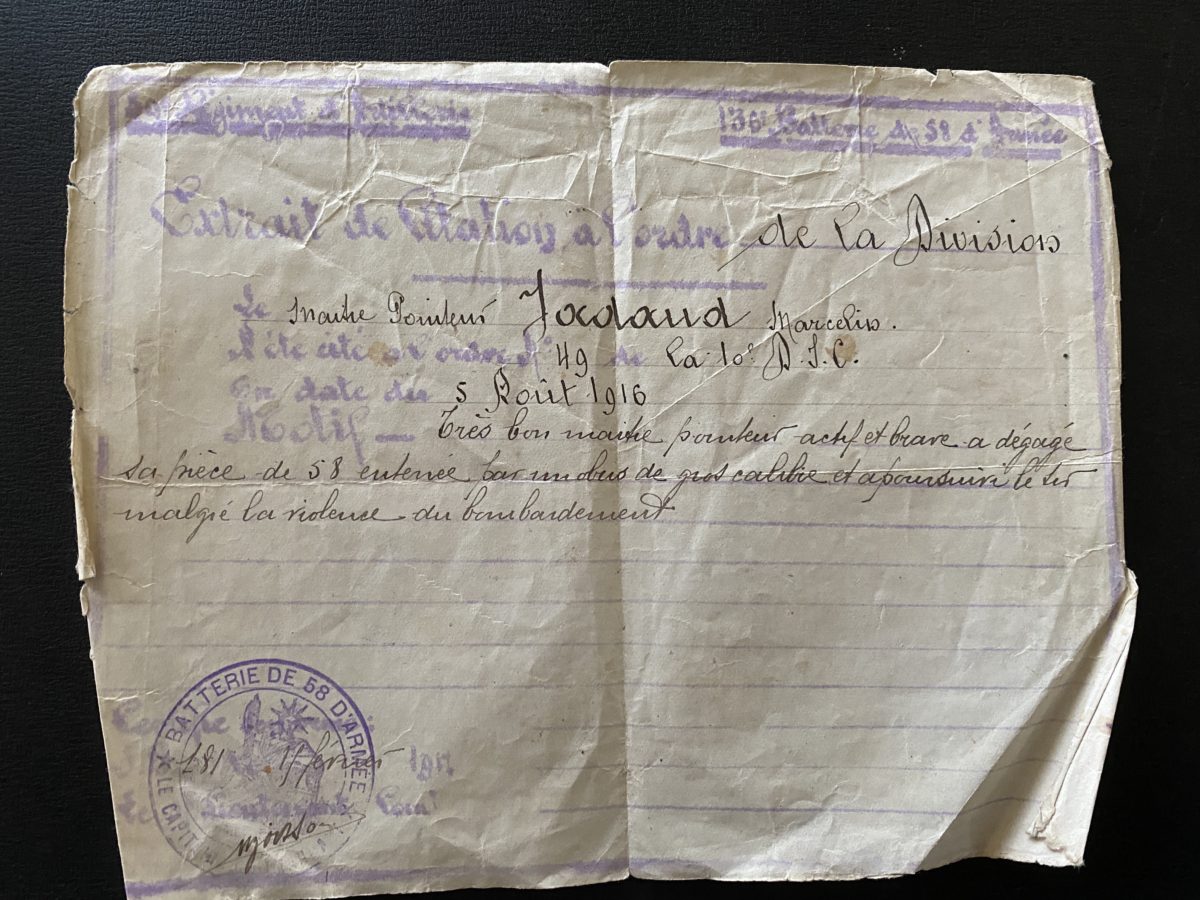 Régiment d'Artillerie
136e Batterie de 58 d'Armée
Extrait de Citation à l'ordre de la Division
Le Maître Pointeur Jadaud Marcelin.
A été cité à l'ordre N° 49 de La 10e D.I.C.
En date du 5 Août 1916
Motif — Très bon maître pointeur actif et brave a dégagé
sa pièce de 58 enterrée par un obus de gros calibre et a poursuivi le tir
malgré la violence du bombardement
BATTERIE DE 58 D'ARMÉE
LE CAPITAINE
février 191
Lieutenant